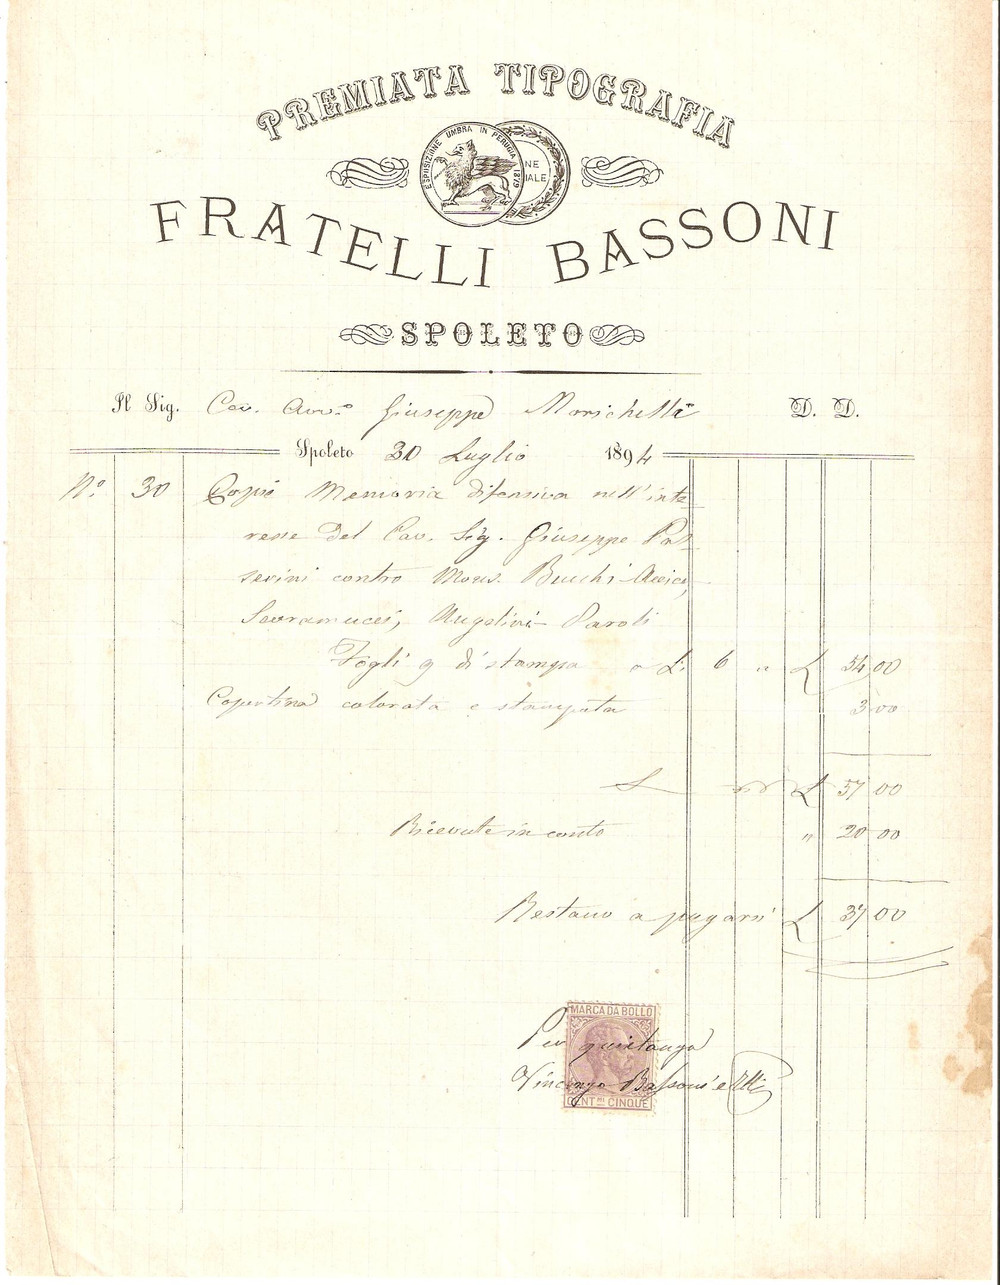 PREMIATA TIPOGRAFIA
ESPOSIZIONE UMBRA IN PERUGIA 1879
NE
IALE
FRATELLI BASSONI
SPOLETO
Il Sig. Cav. Avv.o Giuseppe Morichelli D. D.
Spoleto 30 Luglio 1894
N.o 30 Copie Memoria difensiva nell'inte
resse del Cav. Sig. Giuseppe Pas
serini contro Mons. Bucchi-Accica,
Sovramucci, Angelini Paroli
Fogli 9 di stampa a L. 6 " L 54,00
Copertina colorata e stampata 3,00
L 57,00
Ricevute in conto " 20,00
Restano a pagarsi L 37,00
MARCA DA BOLLO
Per quietanza
Vincenzo Bassoni e Flli
CENT.MI CINQUE